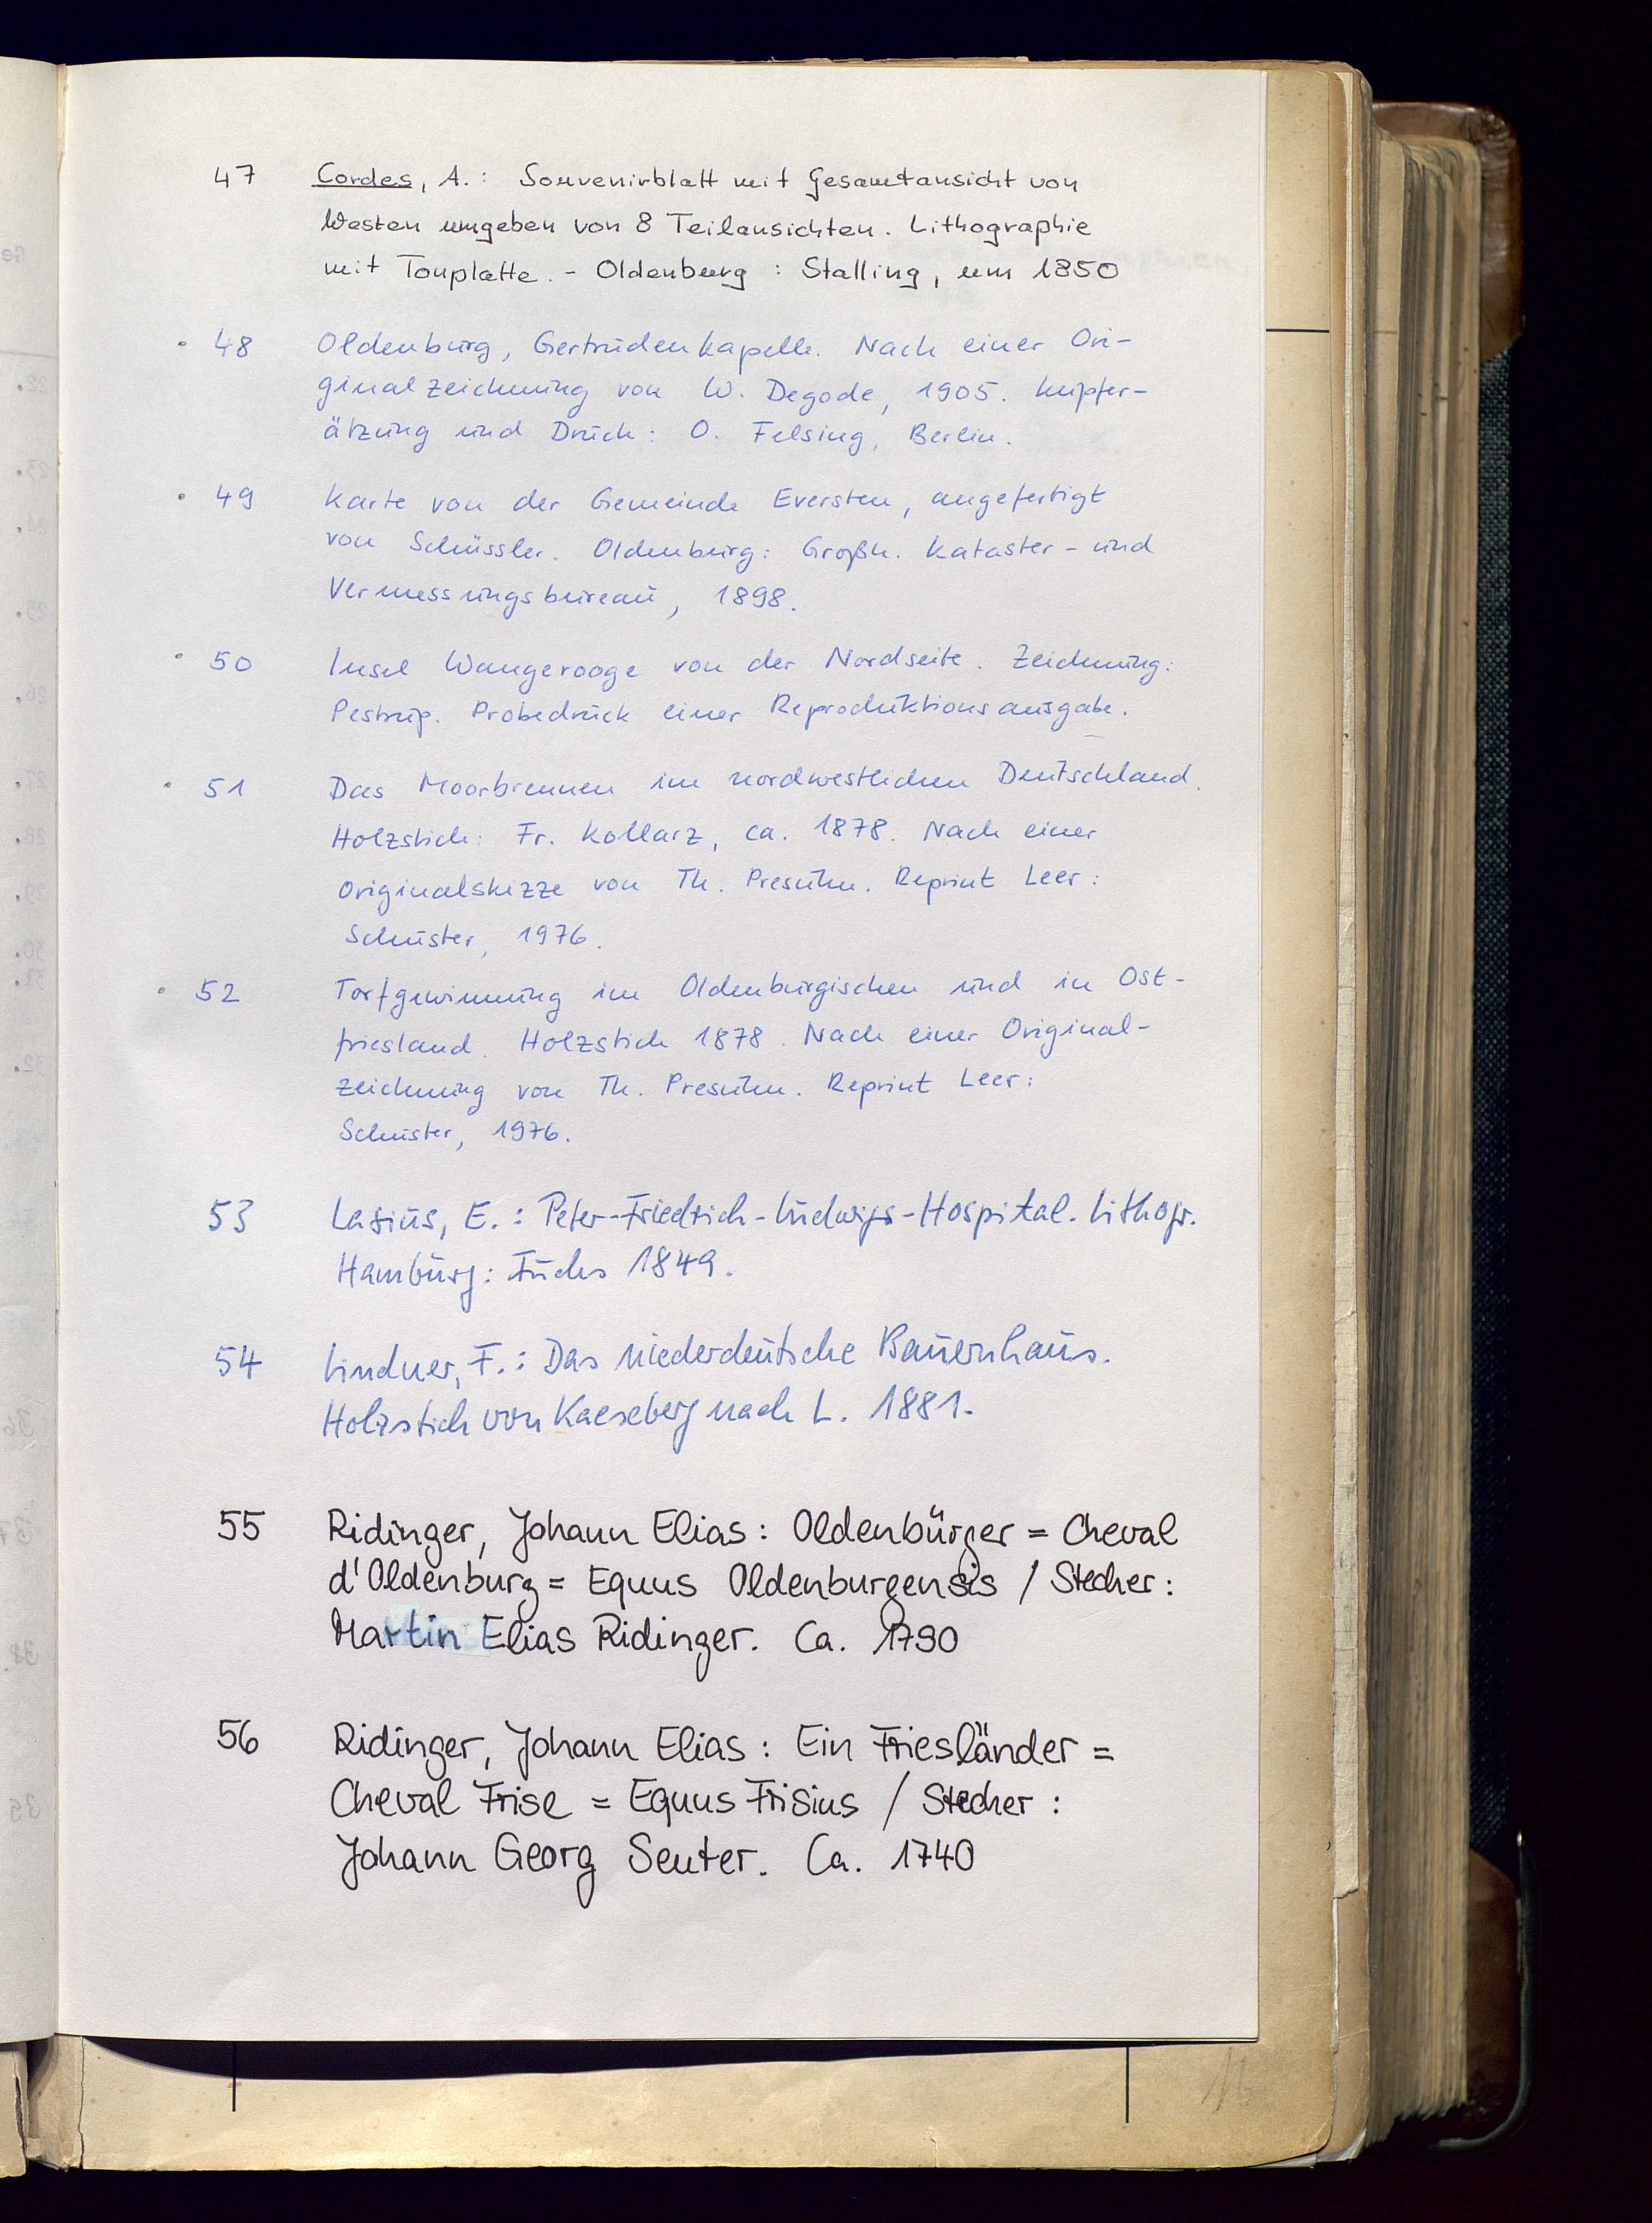 47 Cordes, A.: Souvenirblatt mit Gesamtansicht von
Westen umgeben von 8 Teilansichten. Lithographie
mit Tonplatte. - Oldenburg : Stalling, um 1850
48 Oldenburg, Gertrudenkapelle. Nach einer Ori-
ginalzeichnung von W. Degode, 1905. Kupfer-
ätzung und Druck: O. Felsing, Berlin.
49 Karte von der Gemeinde Eversten, angefertigt
von Schüssler. Oldenburg: Großh. Kataster- und
Vermessungsbureau, 1898.
50 Insel Wangerooge von der Nordseite. Zeichnung:
Pestrup. Probedruck einer Reproduktionsausgabe.
51 Das Moorbrennen im nordwestlichen Deutschland.
Holzstich: Fr. Kollarz, ca. 1878. Nach einer
Originalskizze von Th. Presuhn. Reprint Leer:
Schuster, 1976.
52 Torfgewinnung im Oldenburgischen und in Ost-
friesland. Holzstich 1878. Nach einer Original-
zeichnung von Th. Presuhn. Reprint Leer:
Schuster, 1976.
53 Lasius, E.: Peter-Friedrich-Ludwigs-Hospital. Lithogr.
Hamburg: Fuchs 1849.
54 Lindner, F.: Das niederdeutsche Bauernhaus.
Holzstich von Kaeseberg nach L. 1881.
55 Ridinger, Johann Elias: Oldenbürger = Cheval
d'Oldenburg = Equus Oldenburgensis / Stecher:
Martin Elias Ridinger. Ca. 1790
56 Ridinger, Johann Elias: Ein Friesländer =
Cheval Frise = Equus Frisius / Stecher:
Johann Georg Seuter. Ca. 1740